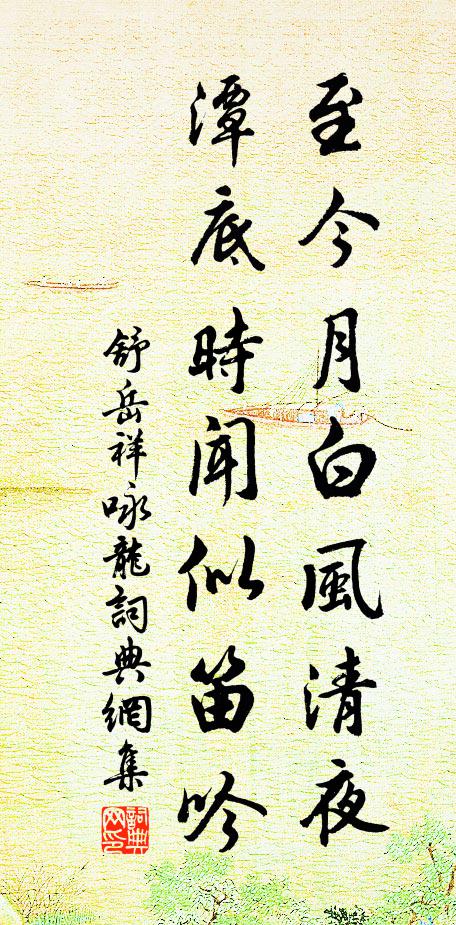 至今月白風清夜
潭底時聞似笛吟
舒岳祥咏龍詞典網集
詞典
网印